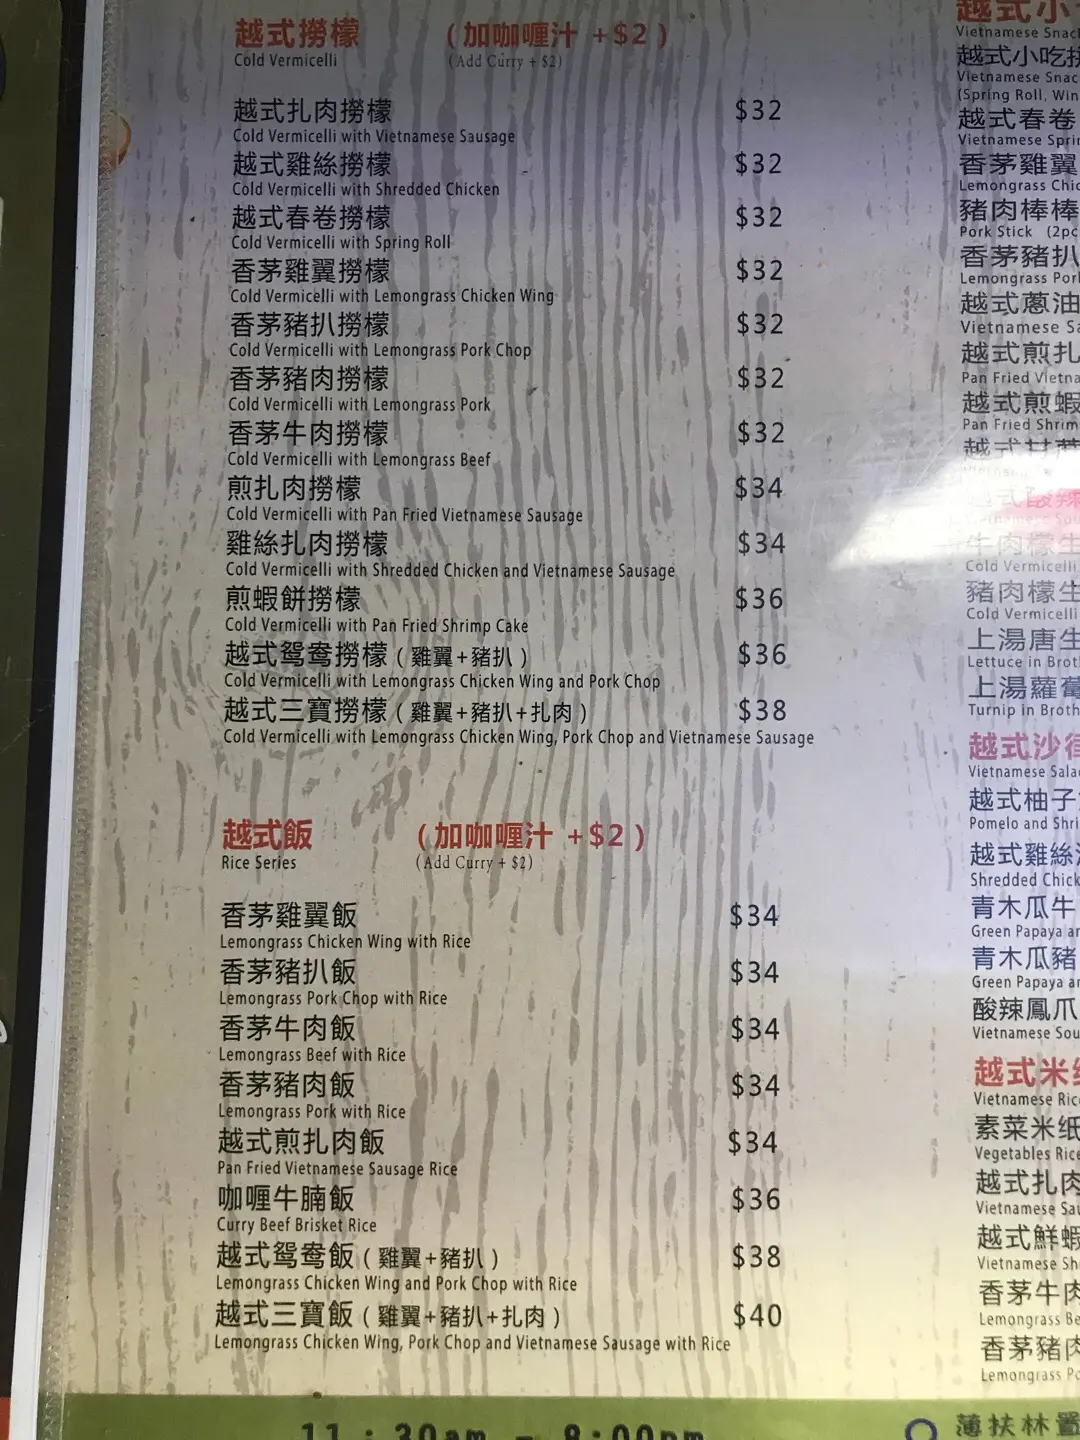 越式撈檬 （加咖喱汁 +$2）
Cold Vermicelli (Add Curry + $2)
越式扎肉撈檬 $32
Cold Vermicelli with Vietnamese Sausage
越式雞絲撈檬 $32
Cold Vermicelli with Shredded Chicken
越式春卷撈檬 $32
Cold Vermicelli with Spring Roll
香茅雞翼撈檬 $32
Cold Vermicelli with Lemongrass Chicken Wing
香茅豬扒撈檬 $32
Cold Vermicelli with Lemongrass Pork Chop
香茅豬肉撈檬 $32
Cold Vermicelli with Lemongrass Pork
香茅牛肉撈檬 $32
Cold Vermicelli with Lemongrass Beef
煎扎肉撈檬 $34
Cold Vermicelli with Pan Fried Vietnamese Sausage
雞絲扎肉撈檬 $34
Cold Vermicelli with Shredded Chicken and Vietnamese Sausage
煎蝦餅撈檬 $36
Cold Vermicelli with Pan Fried Shrimp Cake
越式鴛鴦撈檬（雞翼+豬扒） $36
Cold Vermicelli with Lemongrass Chicken Wing and Pork Chop
越式三寶撈檬（雞翼+豬扒+扎肉） $38
Cold Vermicelli with Lemongrass Chicken Wing, Pork Chop and Vietnamese Sausage
越式飯 （加咖喱汁 +$2）
Rice Series (Add Curry + $2)
香茅雞翼飯 $34
Lemongrass Chicken Wing with Rice
香茅豬扒飯 $34
Lemongrass Pork Chop with Rice
香茅牛肉飯 $34
Lemongrass Beef with Rice
香茅豬肉飯 $34
Lemongrass Pork with Rice
越式煎扎肉飯 $34
Pan Fried Vietnamese Sausage Rice
咖喱牛腩飯 $36
Curry Beef Brisket Rice
越式鴛鴦飯（雞翼+豬扒） $38
Lemongrass Chicken Wing and Pork Chop with Rice
越式三寶飯（雞翼+豬扒+扎肉） $40
Lemongrass Chicken Wing, Pork Chop and Vietnamese Sausage with Rice
越式小
Vietnamese
越式小吃
Vietnamese
(Spring Roll,
越式春卷
Vietnamese
香茅雞翼
Lemongrass
豬肉棒棒
Pork Stick (2pc
香茅豬扒
Lemongrass
越式蔥油
Vietnamese
越式煎扎
Pan Fried
越式煎蝦
Pan Fried
越式甘蔗
越式酸辣
牛肉檬生
Cold Vermicelli
豬肉檬生
Cold Vermicelli
上湯唐生
Lettuce in
上湯蘿蔔
Turnip in
越式沙
Vietnamese
越式柚子
Pomelo and
越式雞絲
Shredded
青木瓜牛
Green Papaya
青木瓜豬
Green Papaya
酸辣鳳爪
Vietnamese
越式米
Vietnamese
素菜米纸
Vegetables
越式扎肉
Vietnamese
越式鮮蝦
Vietnamese
香茅牛肉
Lemongrass
香茅豬肉
Lemongrass
11：30am - 8:00pm
薄扶林置